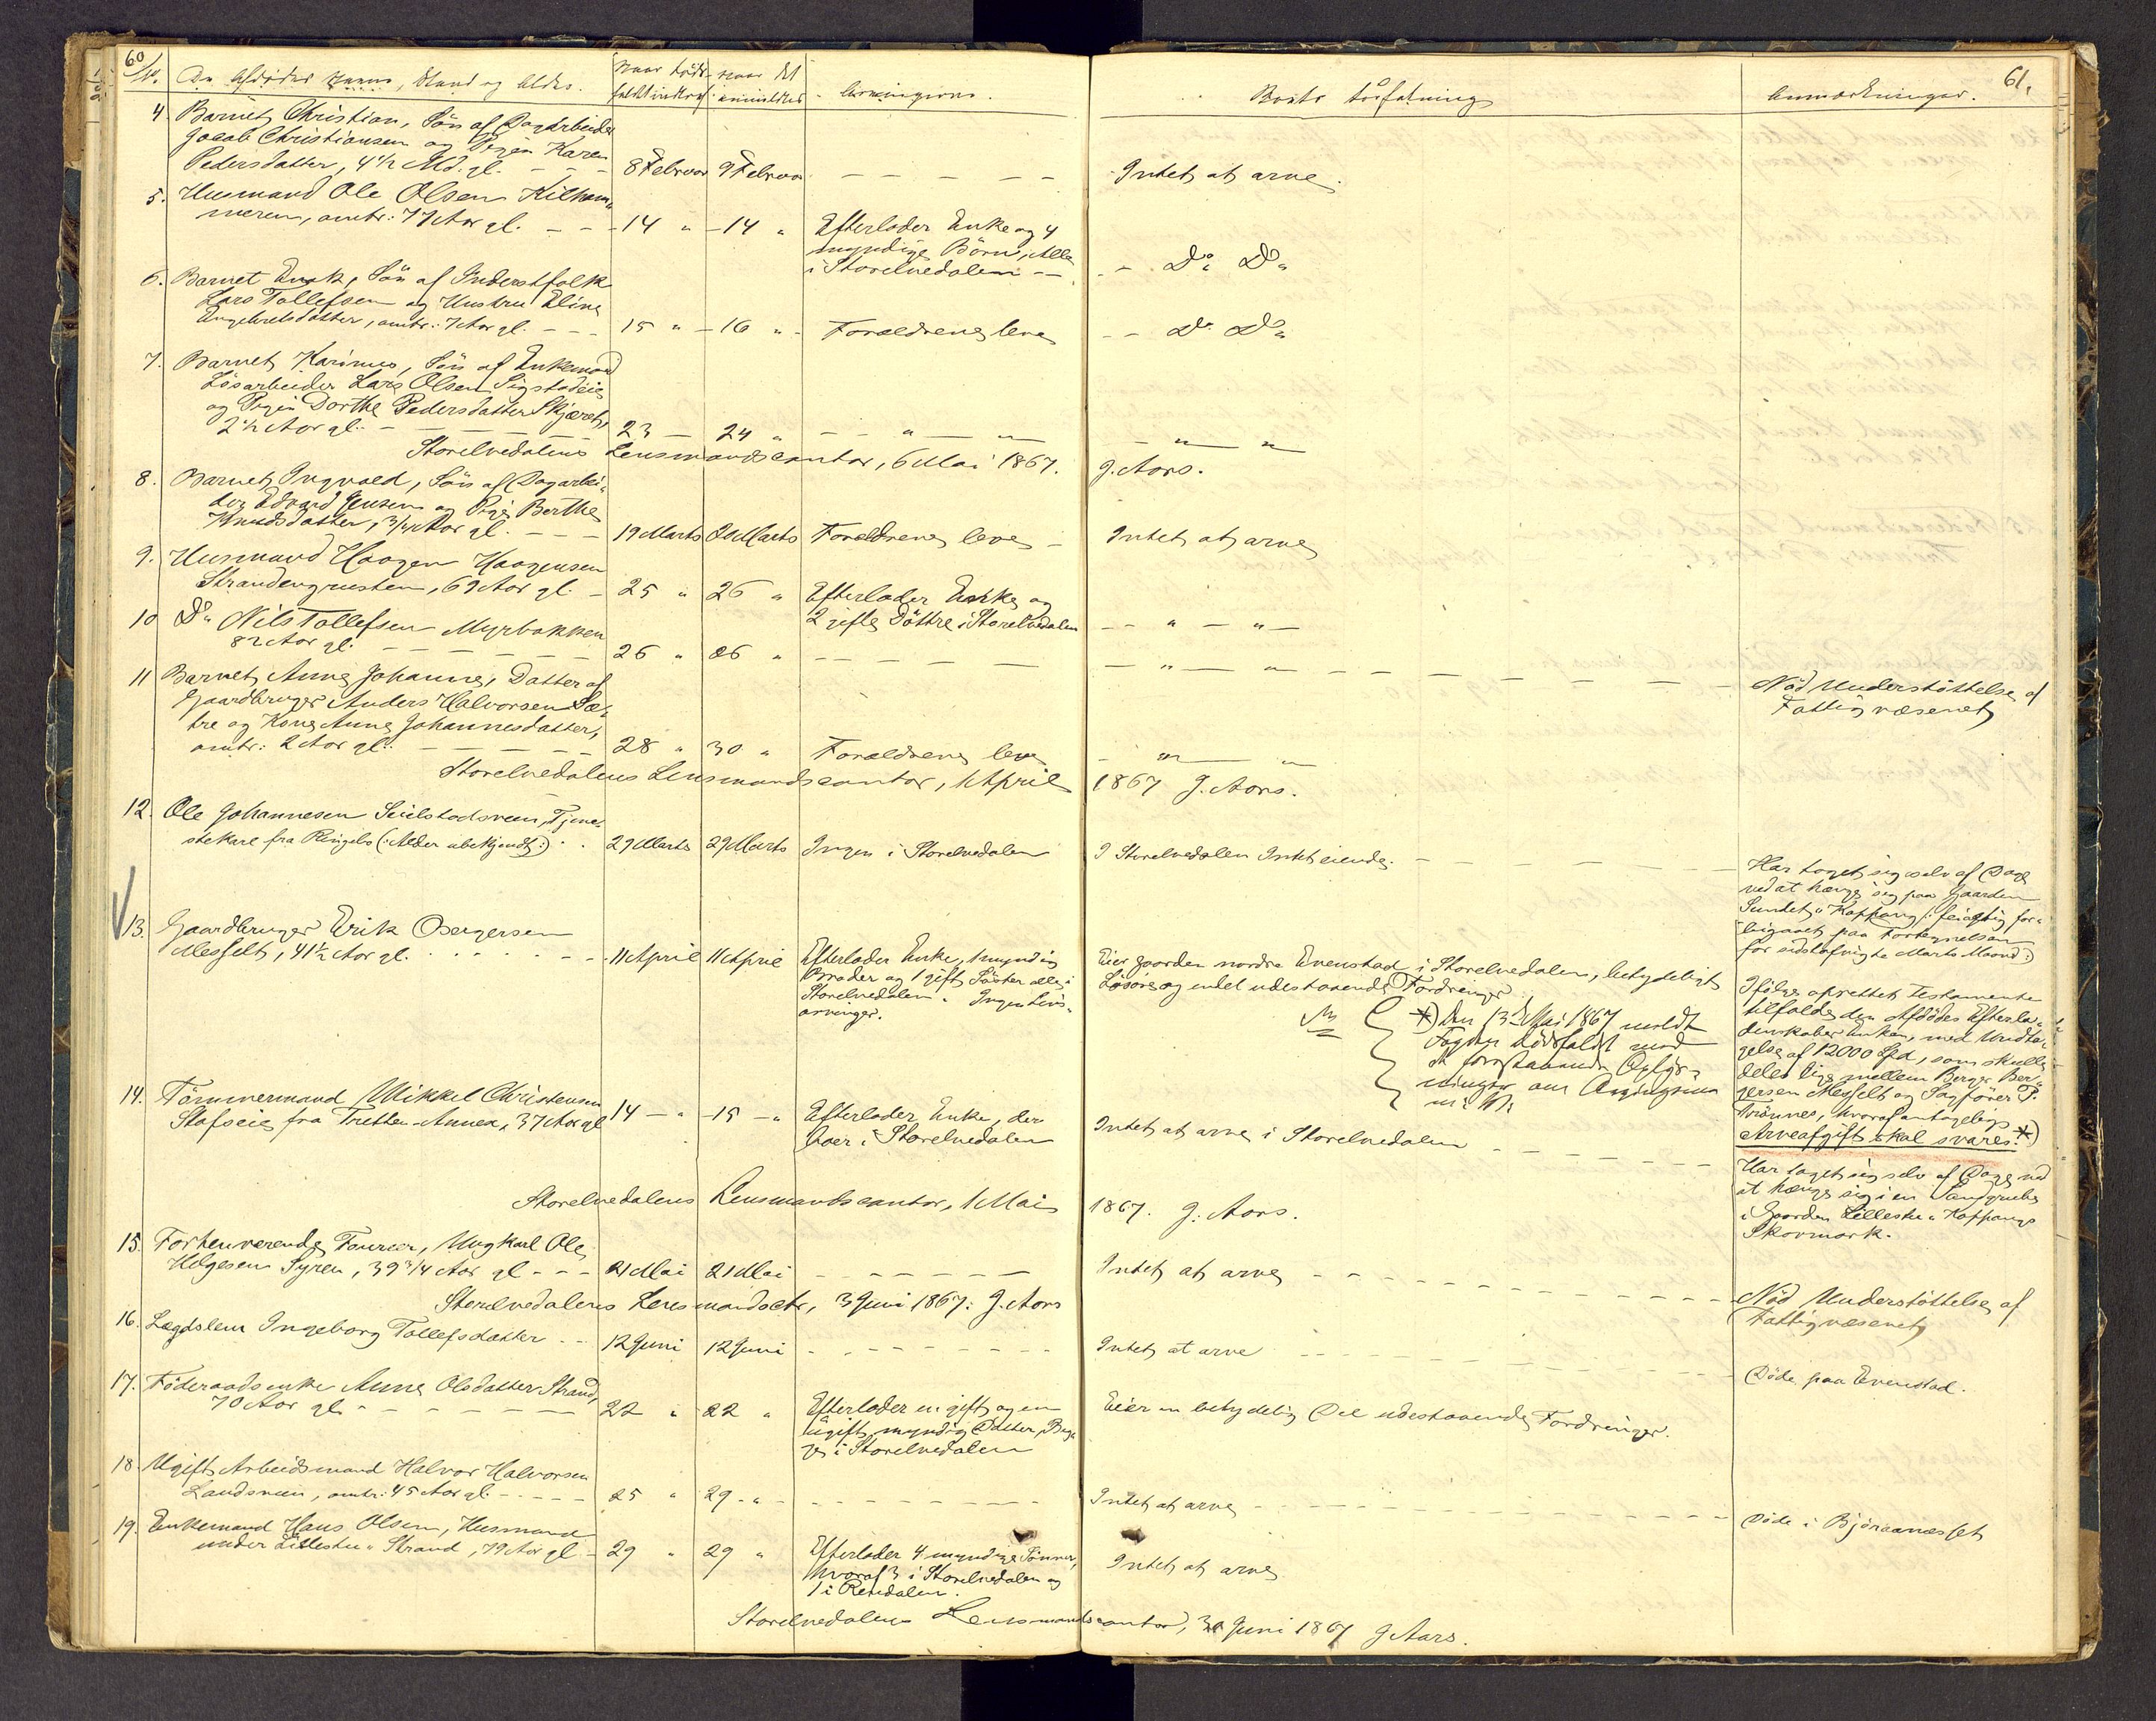 60
No. Den Afdödes Navn, Stand og Alder.
Naar Döds-
faldet indtraf.
Naar det
anmeldtes
Arvingerne.
Boets Forfatning
Anmærkninger.
61.
4. Barnet Christian, Sön af Dagarbeider
Jacob Christiansen og Pigen Karen
Pedersdatter, 4 1/2 Md. gl. 8 Februar 9 Februar
Intet at arve.
5. Husmand Ole Olsen Kilham-
meren, omtr. 77 Aar gl. 14 " 14 " Efterlader Enke og 4
myndige Börn, Alle
i Storelvedalen
Do Do
6. Barnet Enok, Sön af Inderstfolk
Lars Tollefsen og Hustru Eline
Engebretsdatter, omtr: 7 Aar gl. 15 " 16 " Forældrene leve
Do Do
7. Barnet Karinus, Sön af Enkemand
Lösarbeider Lars Olsen Sigstadeie
og Pigen Dorthe Pedersdatter Skjæret,
2 1/2 Aar gl. 23 24 " " "
" "
Storelvedalens Lensmandscontor, 6 Mai 1867. J. Aars.
8. Barnet Ingvald, Sön af Dagarbei-
der Edvard Jensen og Pige Berthe
Knudsdatter, 3/4 Aar gl. 19 Marts 20 Marts Forældrene leve
Intet at arve
9. Husmand Haagen Haagensen
Strandengmoen, 69 Aar gl. 25 " 26 " Efterlader Enke og
2 gifte Döttre i Storelvedalen
" "
10 Do Nils Tollefsen Myrbakken
82 Aar gl. 26 " 26 "
" "
Nöd Understöttelse af
Fattigvæsenet
11 Barnet Anne Johanne, Datter af
Gaardbruger Anders Halvorsen Sæ-
tre og Kone Anne Johannesdatter,
omtr: 2 Aar gl. 28 " 30 " Forældrene leve
" "
Storelvedalens Lensmandscontor, 1 April 1867 J. Aars.
12. Ole Johannesen Seielstadsveen, Tjene-
stekarl fra Ringebo (: Alder ubekjendt:) 29 Marts 29 Marts Ingen i Storelvedalen
I Storelvedalen Intet eiende.
Har taget sig selv af Dage
ved at hænge sig paa Gaarden
Sundet i Koppang (: feilagtig for-
bigaaet paa Fortegnelsen
for sidstafvigte Marts Maaned:)
13. Gaardbruger Erik Bergersen
Messelt, 41 1/2 Aar gl. 11 April 11 April Efterlader Enke, 1 myndig
Broder og 1 gift Söster alle i
Storelvedalen. Ingen Livs-
arvinger.
Eier Gaarden nordre Evenstad i Storelvedalen, betydeligt
Lösöre og endel udestaaende Fordringer
*) Den 13de Mai 1867 meldt
Fogden Dödsfaldet med
de foranstaaende Oplys-
ninger om Arvingerne
m: V:
Ifölge oprettet Testamente
tilfalder den Afdödes Efterla-
denskaber Enken, med Undta-
gelse af 12000 Spd, som skulle
deles lige mellem Berger Ber-
gersen Messelt og Sagförer P.
Trönnes, hvoraf antagelig
Arveafgift skal svares. *)
14. Tömmermand Mikkel Christensen
Stafseie fra Tretten Annex, 37 Aar gl 14 " 15 " Efterlader Enke, der
boer i Storelvedalen
Intet at arve i Storelvedalen
Har taget sig selv af Dage ved
at hænge sig i en Sandgrube
i Gaarden Lillestu i Koppangs
Skovmark.
Storelvedalens Lensmandscontor, 1 Mai 1867. J. Aars.
15. Forhenværende Fourer, Ungkarl Ole
Helgesen Syren, 39 3/4 Aar gl 21 Mai 21 Mai
Intet at arve
Nöd Understöttelse af
Fattigvæsenet
Storelvedalens Lensmandsctr, 3 Juni 1867: J. Aars
16. Lægdslem Ingeborg Tollefsdatter 12 Juni 12 Juni
Intet at arve
Döde paa Evenstad.
17. Föderaadsenke Anne Olsdatter Strand,
70 Aar gl. 22 " 22 " Efterlader en gift og en
ugift myndig Datter, Beg-
ge i Storelvedalen
Eier en betydelig Del udestaaende Fordringer.
18. Ugift Arbeidsmand Halvor Halvorsen
Landsveen, omtr: 45 Aar gl. 25 " 29 "
Intet at arve
Döde i Björaanæsset
19. Enkemand Hans Olsen, Husmand
under Lillestu i Strand, 79 Aar gl 29 " 29 " Efterlader 4 myndige Sönner,
hvoraf 3 i Storelvedalen og
1 i Rendalen.
Intet at arve
Storelvedalens Lensmandscontor, 30 Juni 1867 J Aars.